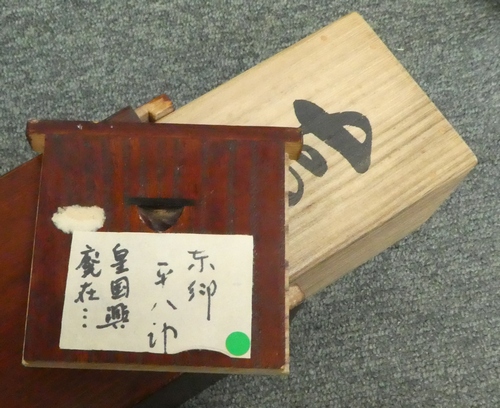 东郷
平八郎
皇国興
廃在…